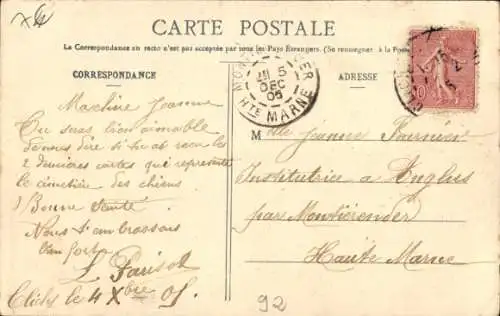 CARTE POSTALE
La Correspondance au recto n'est pas acceptée par tous les Pays Étrangers. (Se renseigner à la Poste
CORRESPONDANCE
ADRESSE
5
DEC
05
HTE MARNE
10
Ma chère Jeanne
Tu seras bien aimable
de me dire si tu as reçu les
2 dernières cartes qui représente
le cimetière des chiens
Bonne santé
Nous t'embrassons
bien fort
L. Parisot
Clichy le 4 Xbre 05.
Mlle Jeanne Fournier
Institutrice a Anglus
par Montierender
Haute Marne
92